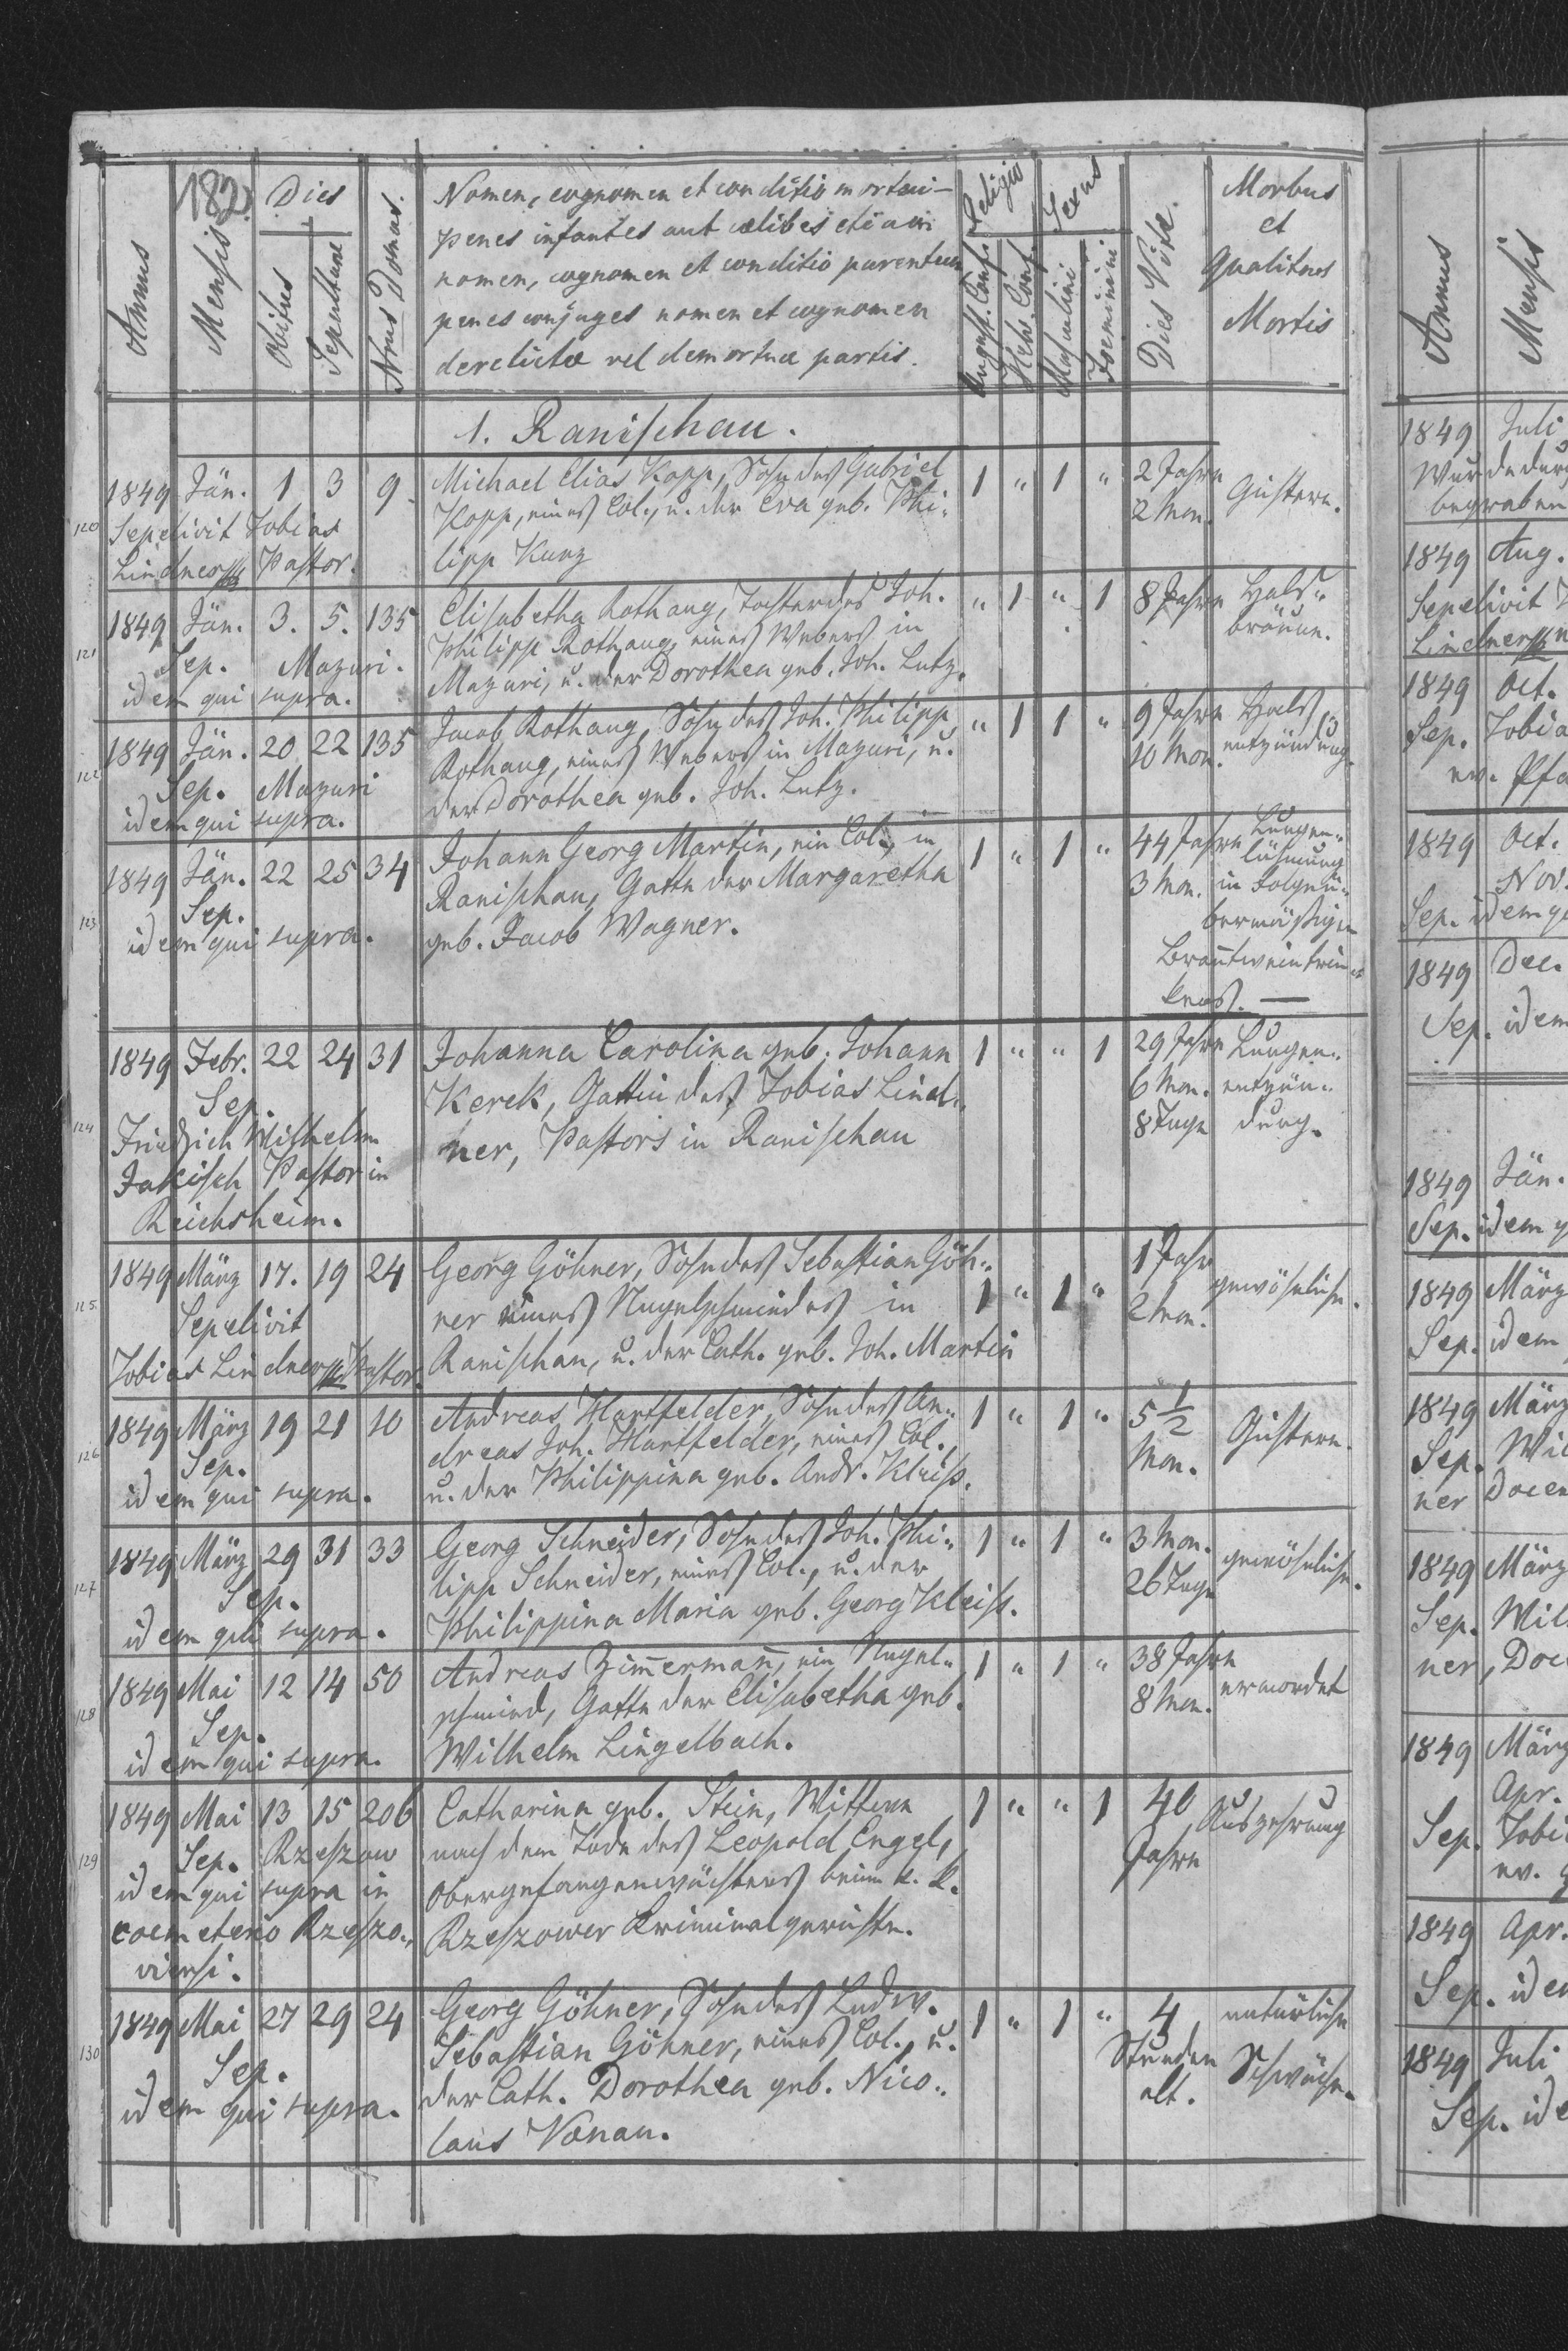 182.
Annus
Mensis
Dies
Obitus
Sepulturae
Nrus Domus.
Nomen, cognomen et conditio mortui-
penes infantes aut coelibes etiam
nomen, cognomen et conditio parentum
penes conjuges nomen et cognomen
derelictae vel demortuae partis.
Religio
August. Conf.
Helv. Conf.
Sexus
Masculini
Foeminini
Dies Vitae.
Morbus
et
Qualitas
Mortis
1. Ranischau.
120
1849 Jän. 1 3 9
Sepelivit Tobias
Lindner Pastor.
Michael Elias Kopp, Sohn des Gabriel
Kopp, eines Col., u. der Eva geb. Phi-
lipp Kunz
1 " 1 "
2 Jahre
2 Mon.
121
1849 Jän. 3. 5. 135
Sep. Mazuri.
idem qui supra.
Elisabetha Rothaug, Tochter des Joh.
Philipp Rothaug, eines Webers in
Mazuri, u. der Dorothea geb. Joh. Lutz.
" 1 " 1
8 Jahre
Hals-
bräune.
122
1849 Jän. 20 22 135
Sep. Mazuri
idem qui supra.
Jacob Rothaug, Sohn des Joh. Philipp
Rothaug, eines Webers in Mazuri, u.
der Dorothea geb. Joh. Lutz.
" 1 1 "
9 Jahre
10 Mon.
Hals
entzündung.
123
1849 Jän. 22 25 34
Sep.
idem qui supra.
Johann Georg Martin, ein Col., in
Ranischau, Gatte der Margaretha
geb. Jacob Wagner.
1 " 1 "
44 Jahre
3 Mon.
Lungen-
lähmung
in Folge ü-
bermäßigen
Brantweintrin-
kens. —
124
1849 Febr. 22 24 31
Sep.
Friedrich Wilhelm
Jakisch Pastor in
Reichsheim.
Johanna Carolina geb. Johann
Kerek, Gattin des Tobias Lind-
ner, Pastors in Ranischau
1 " " 1
29 Jahre
6 Mon.
8 Tage
Lungen-
entzün-
dung.
125.
1849 März 17. 19 24
Sepelivit
Tobias Lindner Pastor.
Georg Göhner, Sohn des Sebastian Göh-
ner eines Nagelschmiedes in
Ranischau, u. der Cath. geb. Joh. Martin
1 " 1 "
1 Jahr
2 Mon.
gewöhnliche.
126
1849 März 19 21 10
Sep.
idem qui supra.
Andreas Hartfelder, Sohn des An-
dreas Joh. Hartfelder, eines Col.,
u. der Philippina geb. Andr. Kleiss.
1 " 1 "
5 1/2
Mon.
127
1849 März 29 31 33
Sep.
idem qui supra.
Georg Schneider, Sohn des Joh. Phi-
lipp Schneider, eines Col., u. der
Philippina Maria geb. Georg Kleiss.
1 " 1 "
3 Mon.
26 Tage
gewöhnliche.
128
1849 Mai 12 14 50
Sep.
idem qui supra.
Andreas Zimermañ, ein Nagel-
schmied, Gatte der Elisabetha geb.
Wilhelm Lingelbach.
1 " 1 "
38 Jahre
8 Mon.
ermordet
129
1849 Mai 13 15 206
Sep. Rzeszow
idem qui supra in
coemeterio Rzeszo-
viensi.
Catharina geb. Stein, Wittwe
nach dem Tode des Leopold Engel,
Obergefangenwächters beim k. k.
Rzeszower Kriminalgerichte.
1 " " 1
40
Jahre
Auszehrung
130
1849 Mai 27 29 24
Sep.
idem qui supra.
Georg Göhner, Sohn des Ludw.
Sebastian Göhner, eines Col., u.
der Cath. Dorothea geb. Nico-
laus Vonau.
1 " 1 "
4
Stunden
alt.
natürliche
Schwäche.
Annus
Mensis
1849 Juli
Wurde
begraben
1849 Aug.
Sepelivit
Lindner
1849 Oct.
Sep. Tobia
ev. Pfa
1849 Oct.
Nov.
Sep. idem
1849 Dec.
Sep. idem
1849 Jän.
Sep. idem
1849 März
Sep. idem
1849 März
Sep. Wil
ner Docen
1849 März
Sep. Wil
ner, Doc
1849 März
Apr.
Sep. Tobi
ev.
1849 Apr.
Sep. idem
1849 Juli
Sep. ide